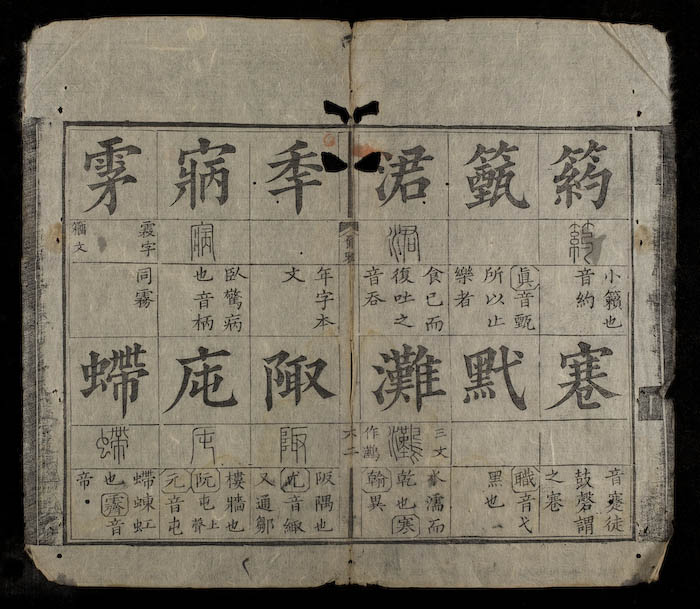 箹
小籟也
音約
籈
眞音甄
所以止
樂者
涒
食已而
復吐之
音吞
寋
音蹇徒
鼓磬謂
之寋
黓
職音弋
黑也
灘
三文
作
水濡而
乾也寒
翰異
爾雅
六二
秊
年字本
文
寎
臥驚病
也音柄
雺
霚字
籀文
同霧
陬
阪隅也
尤音緅
又通鄒
庉
樓牆也
阮屯上聲
元音屯
螮
螮蝀虹
也霽音
帝